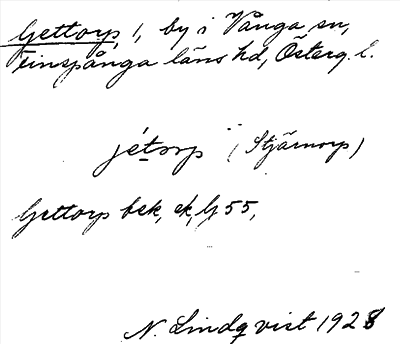 Gettorp, 1, by i Vånga sn,
Finspånga läns hd, Österg. l.
jétorp (Stjärnorp)
Gettorp bek, ek, Gj 55,
N. Lindqvist 1928